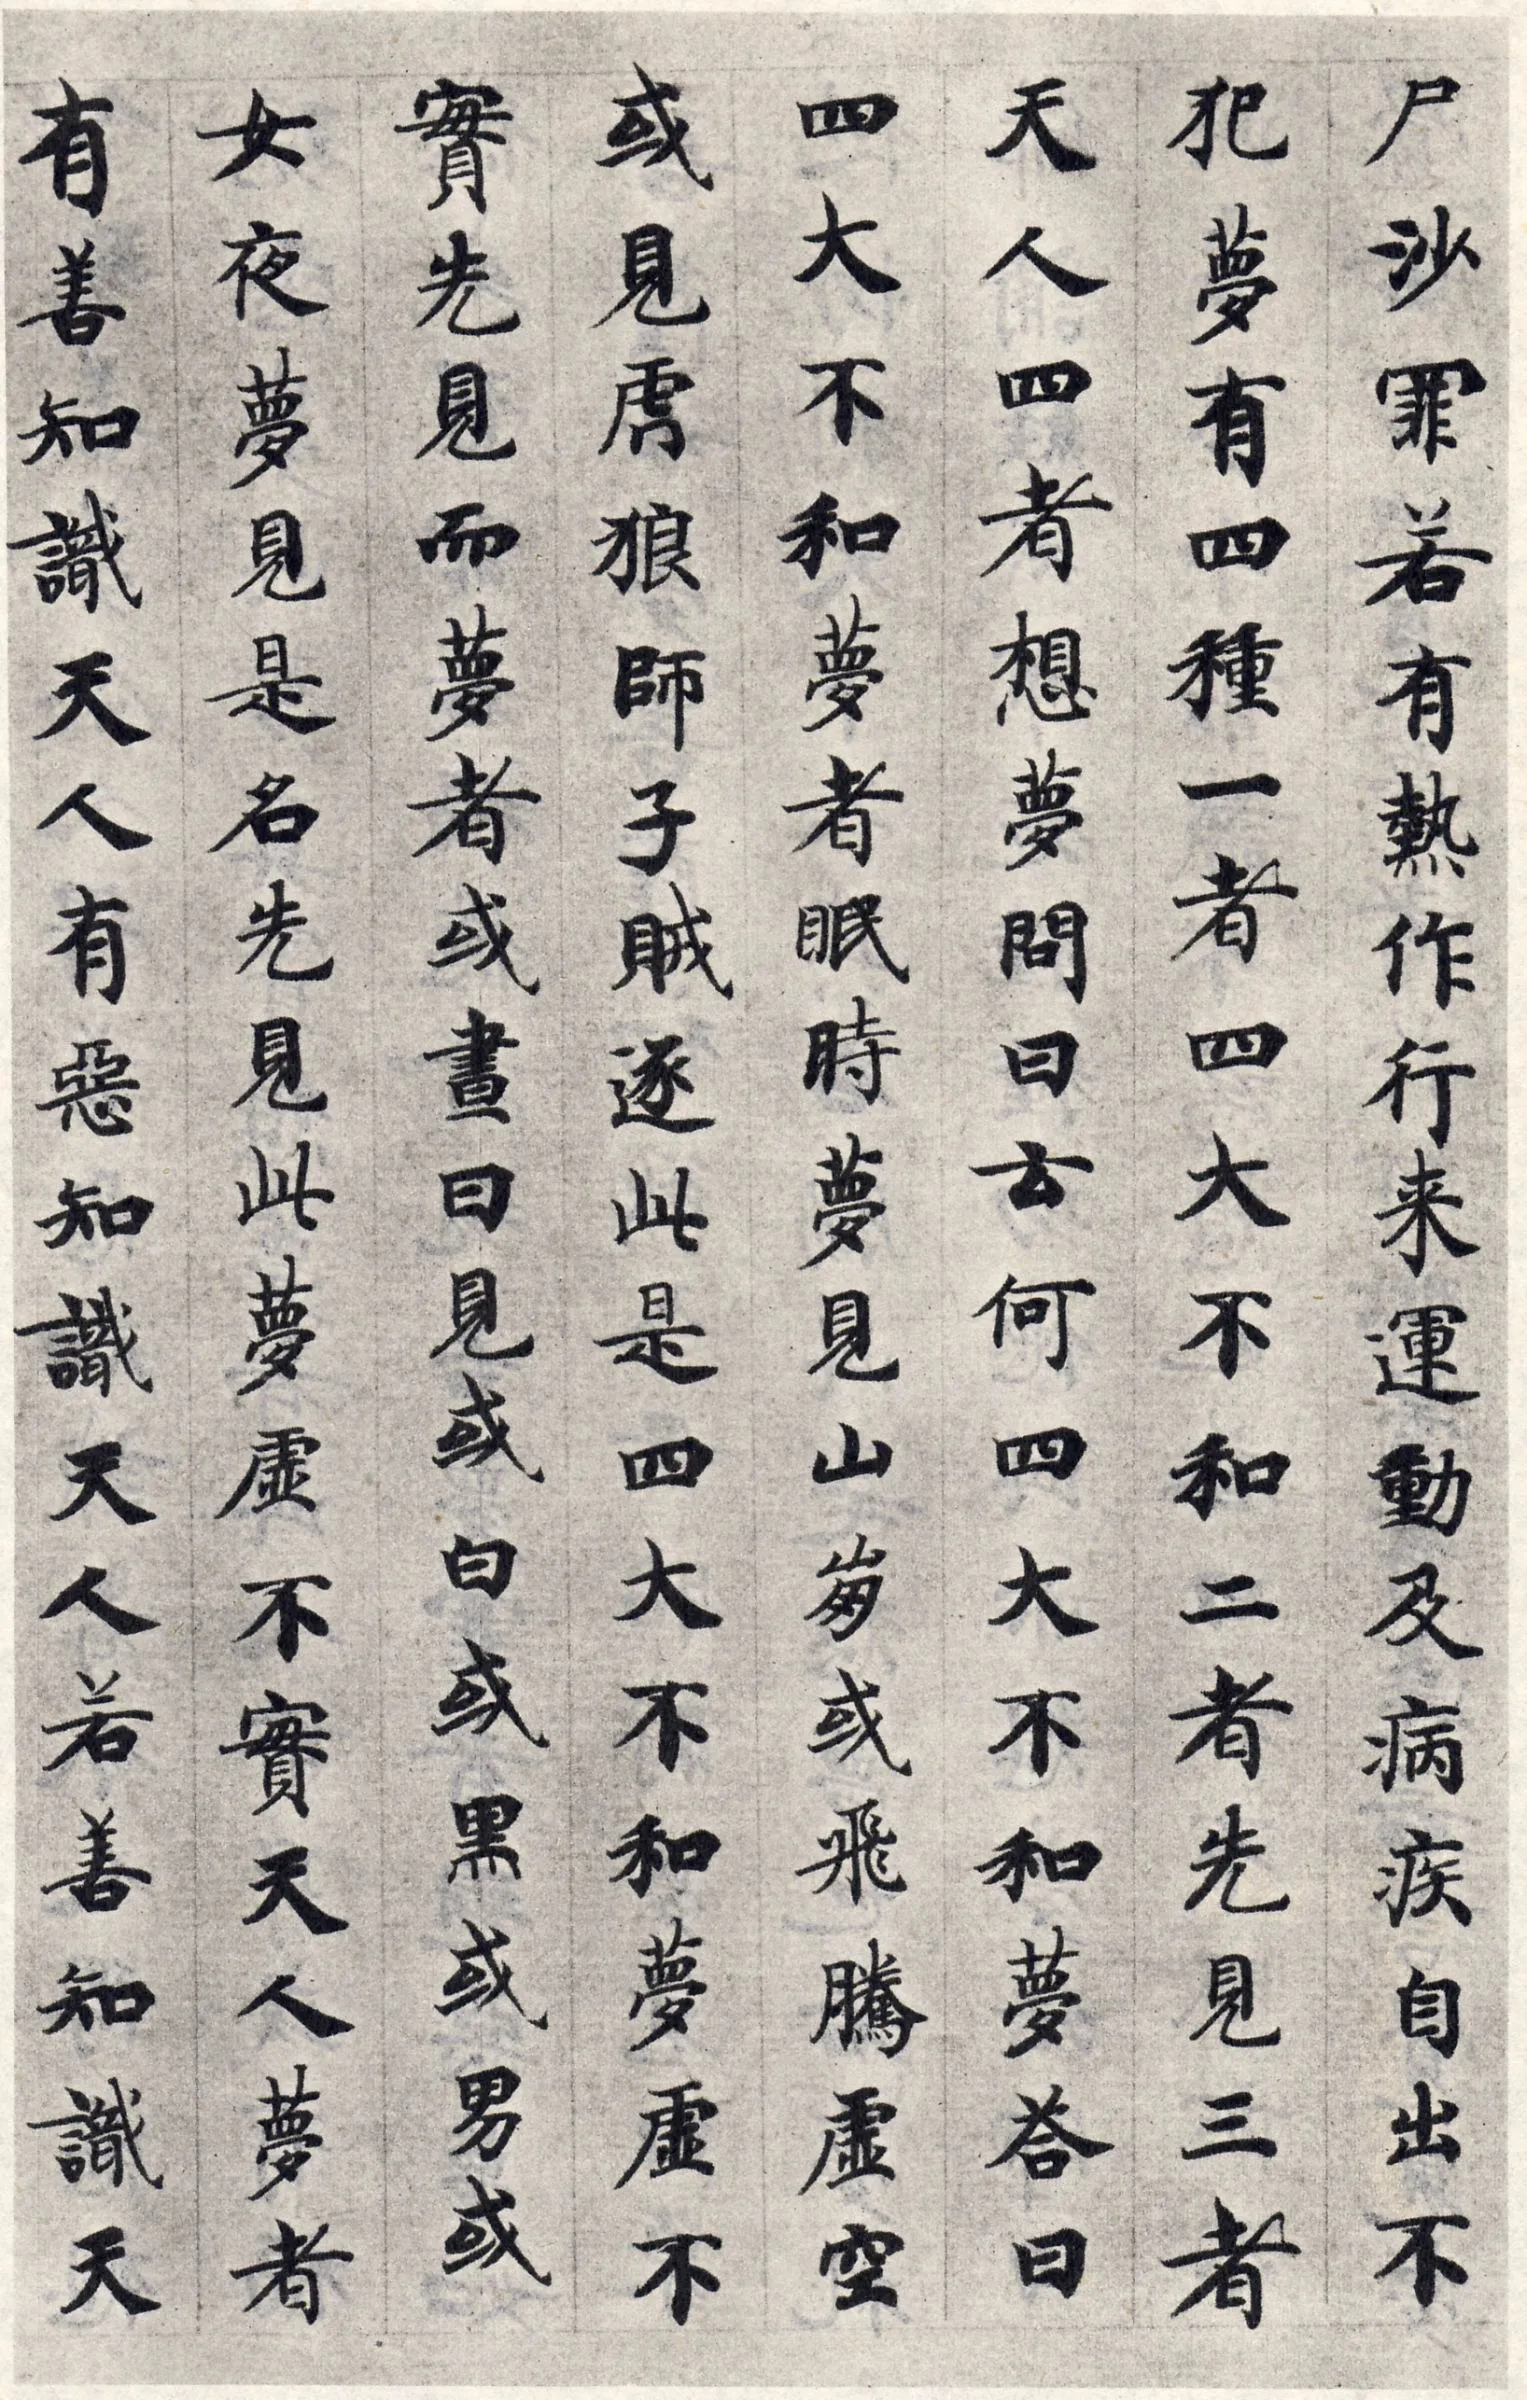 尸沙罪若有熱作行来運動及病疾自出不
犯夢有四種一者四大不和二者先見三者
天人四者想夢問曰云何四大不和夢荅曰
四大不和夢者眠時夢見山崩或飛騰虛空
或見虎狼師子賊逐此是四大不和夢虛不
實先見而夢者或晝日見或白或黒或男或
女夜夢見是名先見此夢虛不實天人夢者
有善知識天人有惡知識天人若善知識天